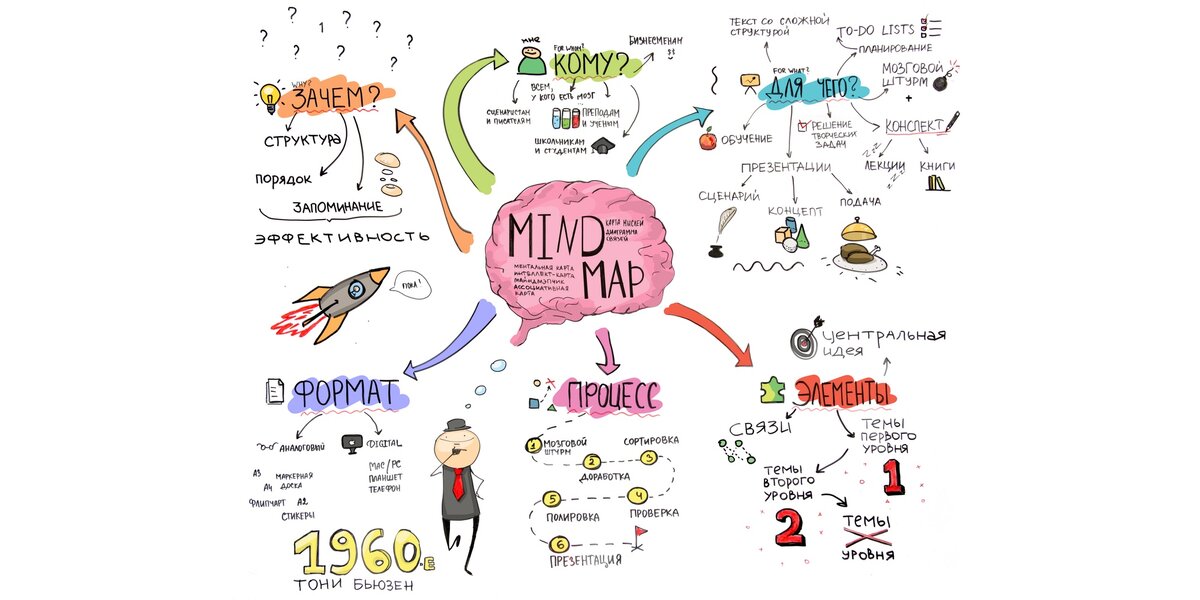 MIND
MAP
КАРТА МЫСЛЕЙ
ДИАГРАММА
СВЯЗЕЙ
МЕНТАЛЬНАЯ КАРТА
ИНТЕЛЛЕКТ-КАРТА
МАЙНДМЭПЧИК
АССОЦИАТИВНАЯ
КАРТА
? ? ? ? ? ? ? ?
WHY?
ЗАЧЕМ?
СТРУКТУРА
ПОРЯДОК
ЗАПОМИНАНИЕ
ЭФФЕКТИВНОСТЬ
ПОКА!
МНЕ
FOR WHOM?
КОМУ?
БИЗНЕСМЕНАМ
$$
ВСЕМ,
У КОГО ЕСТЬ МОЗГ
СЦЕНАРИСТАМ
И ПИСАТЕЛЯМ
ПРЕПОДАМ
И УЧЕНЫМ
ШКОЛЬНИКАМ
И СТУДЕНТАМ
FOR WHAT?
ДЛЯ ЧЕГО?
ТЕКСТ СО СЛОЖНОЙ
СТРУКТУРОЙ
TO-DO LISTS
ПЛАНИРОВАНИЕ
МОЗГОВОЙ
ШТУРМ
+
КОНСПЕКТ
ZZZ
ЛЕКЦИИ
ZZZ
КНИГИ
ОБУЧЕНИЕ
РЕШЕНИЕ
ТВОРЧЕСКИХ
ЗАДАЧ
ПРЕЗЕНТАЦИИ
СЦЕНАРИЙ
КОНЦЕПТ
ПОДАЧА
ФОРМАТ
АНАЛОГОВЫЙ
А3
А4
МАРКЕРНАЯ
ДОСКА
ФЛИПЧАРТ
А2
СТИКЕРЫ
DIGITAL
MAC/PC
ПЛАНШЕТ
ТЕЛЕФОН
1960.Е
ТОНИ БЬЮЗЕН
ПРОЦЕСС
1 МОЗГОВОЙ
ШТУРМ
2
ДОРАБОТКА
СОРТИРОВКА
3
4
ПРОВЕРКА
5
ПОЛИРОВКА
6
ПРЕЗЕНТАЦИЯ
ЭЛЕМЕНТЫ
ЦЕНТРАЛЬНАЯ
ИДЕЯ
СВЯЗИ
ТЕМЫ
ПЕРВОГО
УРОВНЯ
1
ТЕМЫ
ВТОРОГО
УРОВНЯ
2
ТЕМЫ
X
УРОВНЯ